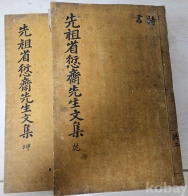 先祖省愆齋先生文集 乾
先祖省愆齋先生文集 坤
kobay